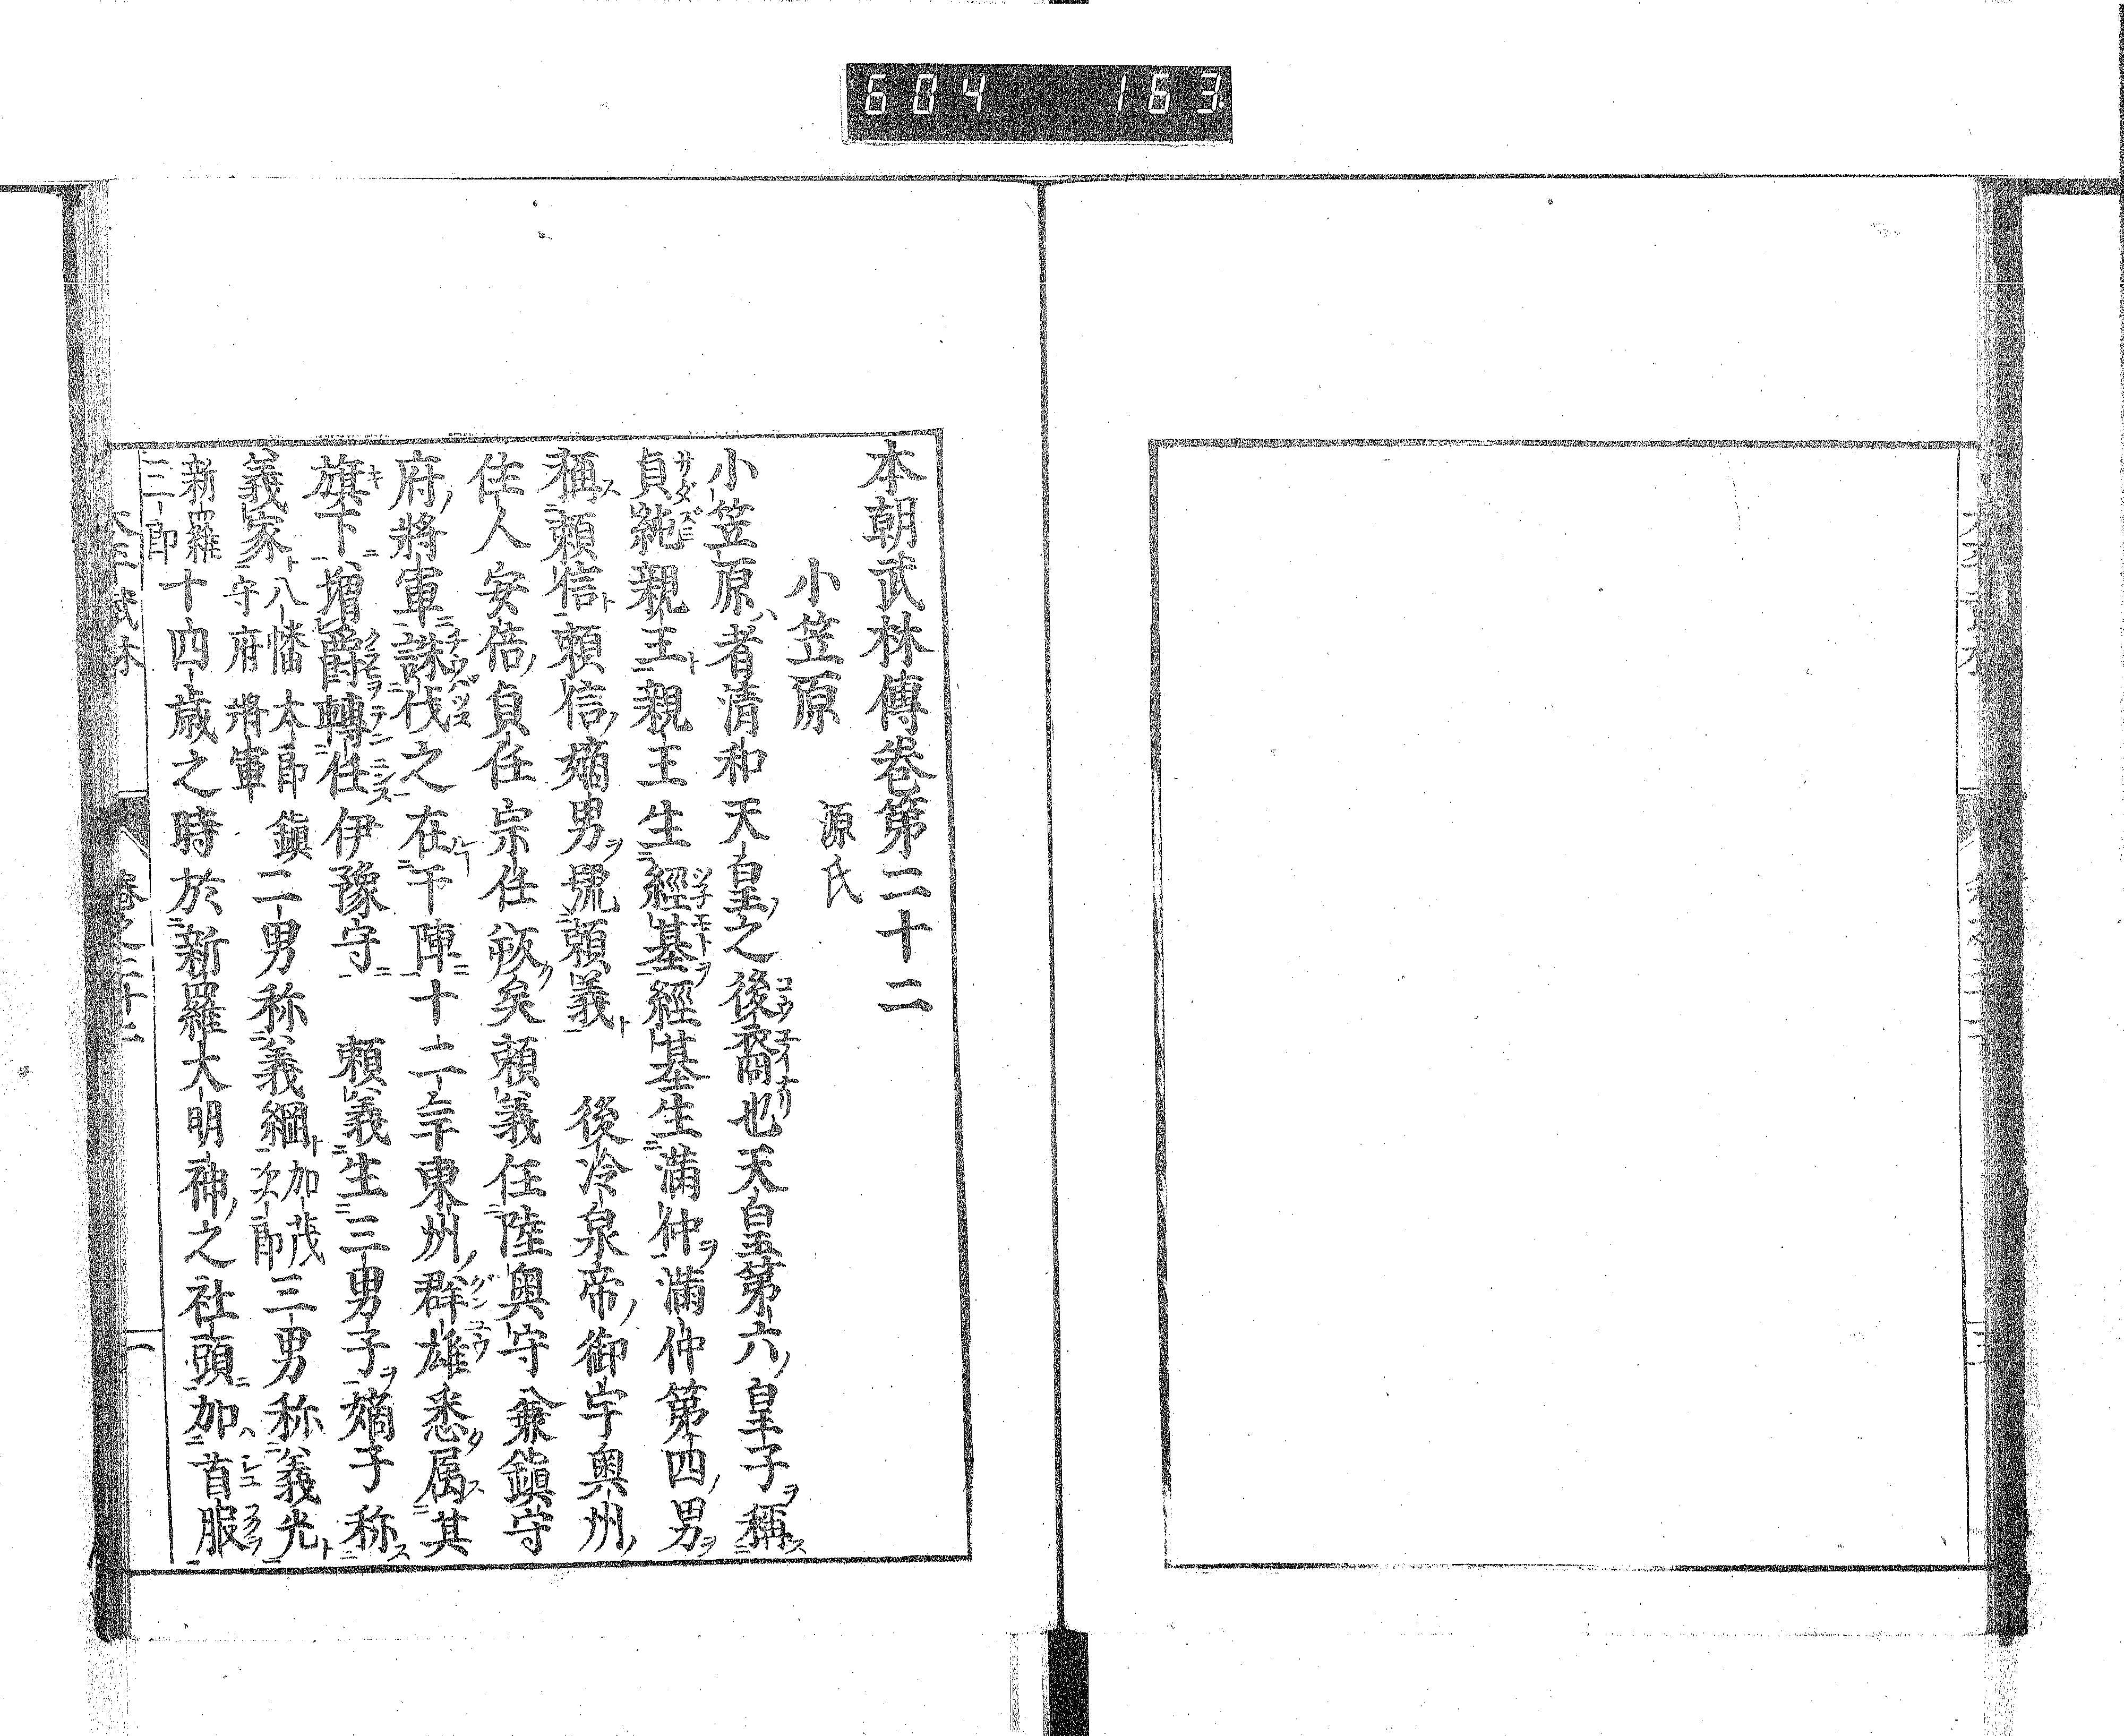 604 163
本朝武林傳卷第二十二
小笠原 源氏
小笠原者清和天皇之後裔也天皇第六皇子稱
貞純親王親王生經基經基生滿仲滿仲第四男
稱頼信頼信嫡男號頼義 後冷泉帝御宇奥州
住人安倍貞任宗任叛矣頼義任陸奥守兼鎮守
府將軍誅伐之在干陣十二年東州群雄悉属其
旗下増爵轉任伊豫守 頼義生三男子嫡子称
義家八幡太郎鎮守府將軍二男称義綱加茂次郎三男称義光
新羅三郎十四歳之時於新羅大明神之社頭加首服
卷之二十二 一